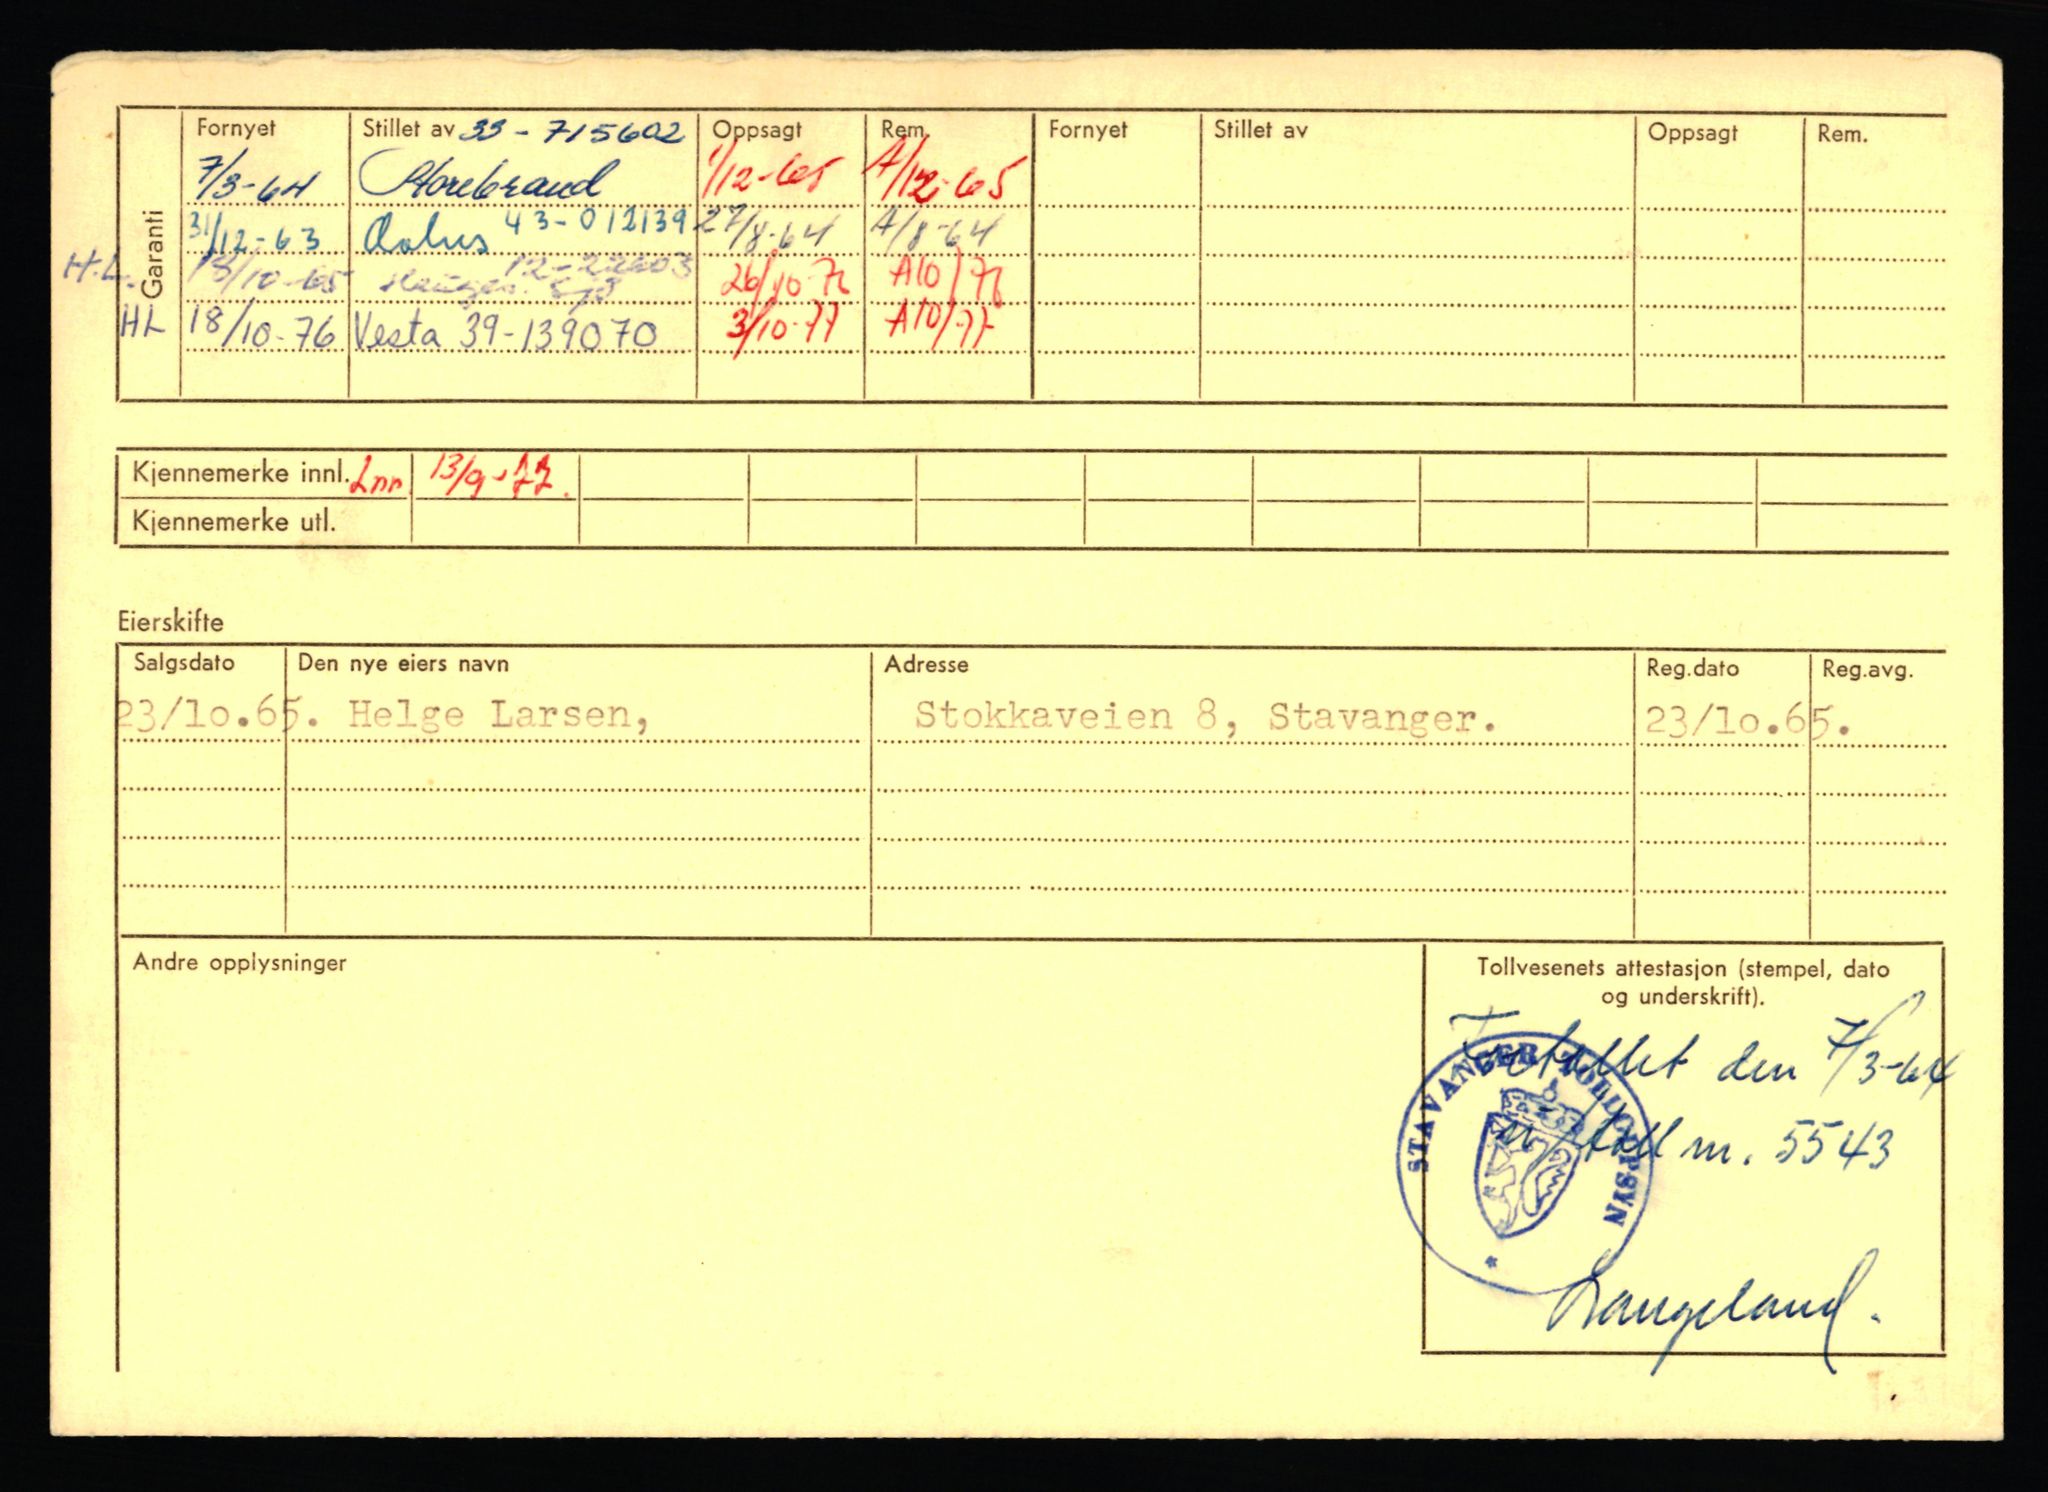 Garanti
Fornyet Stillet av 33-715602 Oppsagt Rem. Fornyet Stillet av Oppsagt Rem.
7/3-64 Storebrand 1/12-65 A/12-65
31/12-63 43-012139 27/8-64 A/8-64
H.L. 18/10-65 26/10-76 A10/76
HL 18/10-76 Vesta 39-139070 3/10-77 A10/77
Kjennemerke innl. Lnr. 13/9-77.
Kjennemerke utl.
Eierskifte
Salgsdato Den nye eiers navn Adresse Reg.dato Reg.avg.
23/10.65. Helge Larsen, Stokkaveien 8, Stavanger. 23/10.65.
Andre opplysninger
Tollvesenets attestasjon (stempel, dato
og underskrift).
Fortollet den 7/3-64
nr. 5543
STAVANGER TOLLOPPSYN
Langeland.